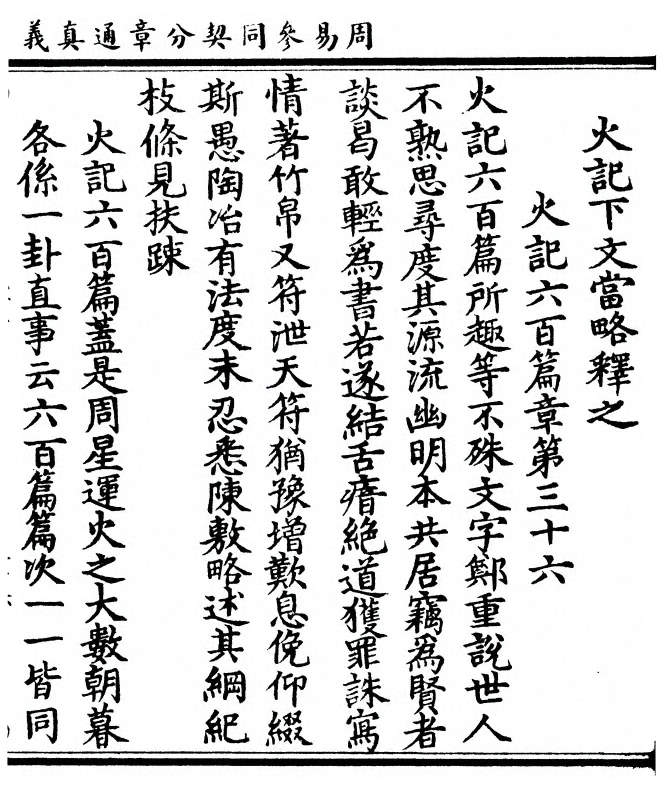 周易參同契分章通真義
火記下文當略釋之
火記六百篇章第三十六
火記六百篇所趣等不殊文字鄭重說世人
不熟思尋度其源流幽明本共居竊為賢者
談曷敢輕為書若遂結舌瘖絕道獲罪誅寫
情著竹帛又符泄天符猶豫增歎息俛仰綴
斯愚陶冶有法度未忍悉陳敷略述其綱紀
枝條見扶踈
火記六百篇蓋是周星運火之大數朝暮
各係一卦直事云六百篇篇次一一皆同